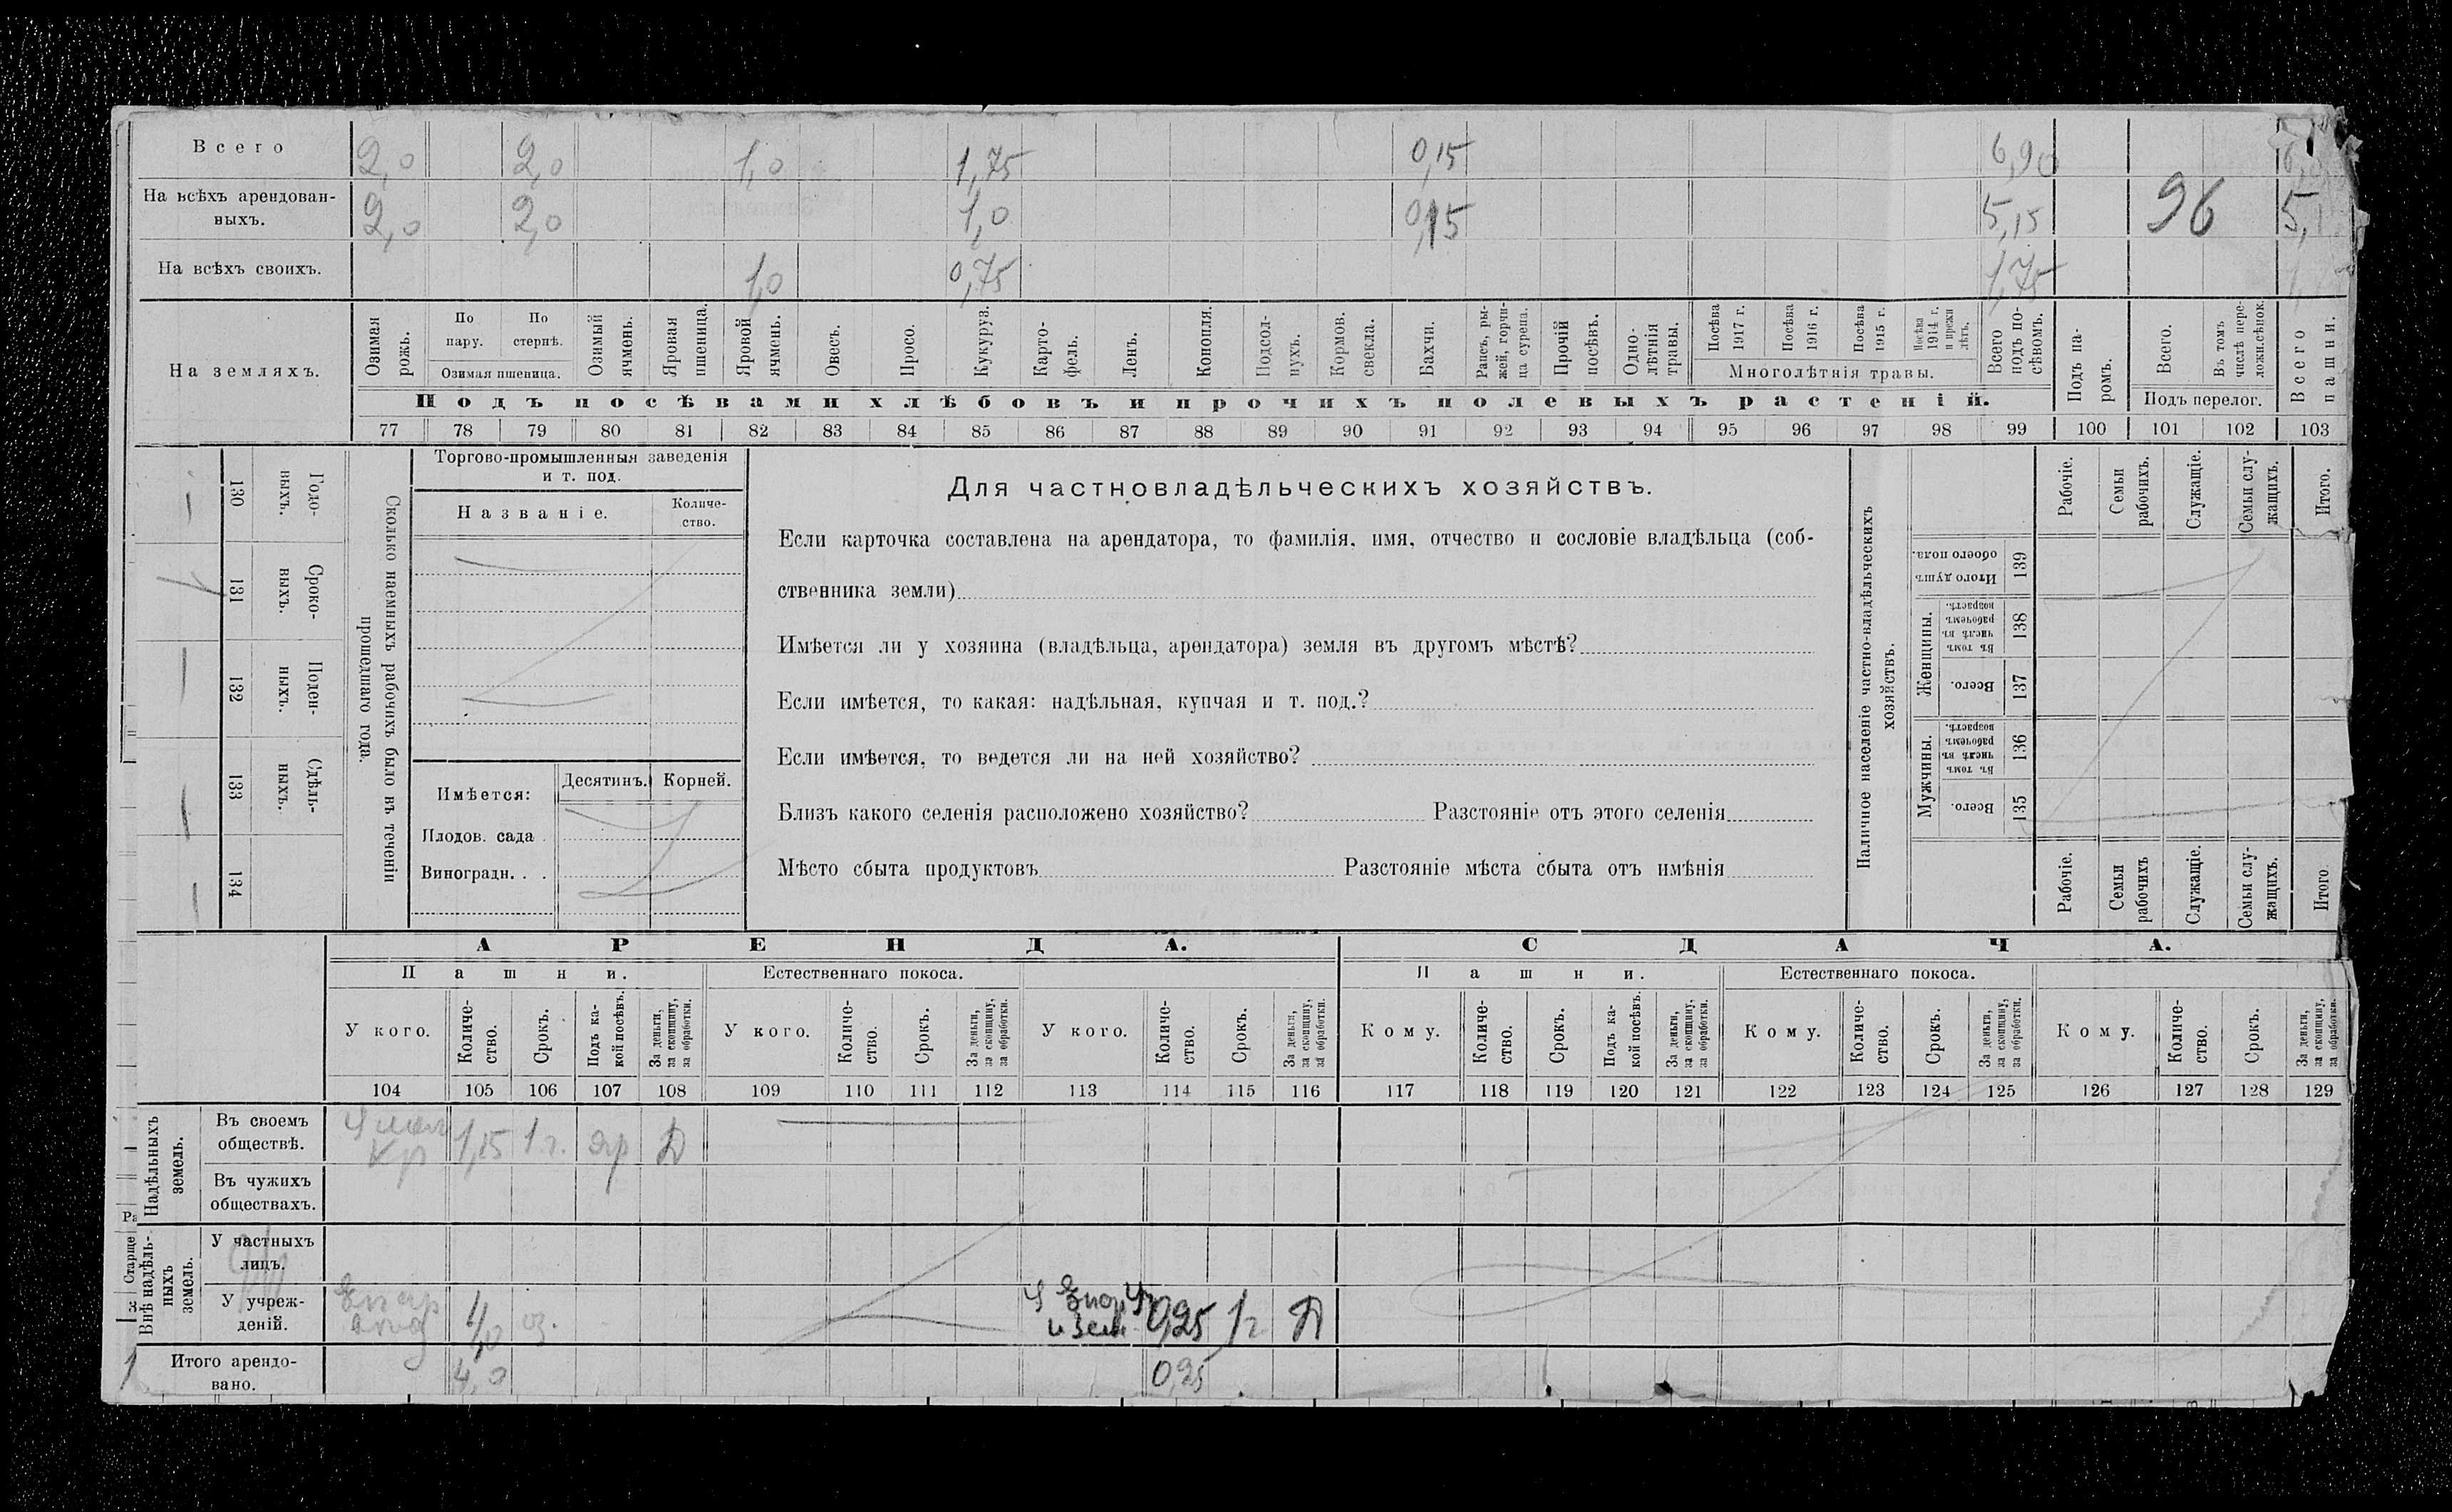 Всего 2,0 2,0 1,0 1,75 0,15 6,90
На всѣхъ арендован-
ныхъ. 2,0 2,0 1,0 0,15 5,15 96 5,
На всѣхъ своихъ. 1,0 0,75 1,75
На земляхъ.
Озимая рожь.
По пару.
По стернѣ.
Озимая пшеница.
Озимый ячмень.
Яровая пшеница.
Яровой ячмень.
Овесъ.
Просо.
Кукуруз.
Карто-
фель.
Ленъ.
Конопля.
Подсол-
нухъ.
Кормов. свекла.
Бахчи.
Рапсъ, ры-
жей, горчи-
ца сурепа.
Прочій посѣвъ.
Одно-
лѣтнія травы.
Посѣва 1917 г.
Посѣва 1916 г.
Посѣва 1915 г.
Посѣва 1914 г. и прежн лѣтъ.
Многолѣтнія травы.
Всего подъ по-
сѣвомъ.
Подъ па-
ромъ.
Всего.
Въ томъ числѣ пере-
ложн.сѣнок.
Подъ перелог.
Всего пашни.
Подъ посѣвами хлѣбовъ и прочихъ полевыхъ растеній.
77 78 79 80 81 82 83 84 85 86 87 88 89 90 91 92 93 94 95 96 97 98 99 100 101 102 103
130 Годо-
выхъ.
131 Сроко-
выхъ.
132 Поден-
ныхъ.
133 Сдѣль-
ныхъ.
134
Сколько наемныхъ рабочихъ было въ теченіи
прошедшаго года.
Торгово-промышленныя заведенія
и т. под.
Названіе.
Количе-
ство.
Имѣется:
Десятинъ. Корней.
Плодов. сада .
Виноградн. . .
Для частновладѣльческихъ хозяйствъ.
Если карточка составлена на арендатора, то фамилія, имя, отчество и сословіе владѣльца (соб-
ственника земли)
Имѣется ли у хозяина (владѣльца, арендатора) земля въ другомъ мѣстѣ?
Если имѣется, то какая: надѣльная, купчая и т. под.?
Если имѣется, то ведется ли на ней хозяйство?
Близъ какого селенія расположено хозяйство? Разстояніе отъ этого селенія
Мѣсто сбыта продуктовъ Разстояніе мѣста сбыта отъ имѣнія
Наличное населеніе частно-владѣльческихъ
хозяйствъ.
Рабочіе.
Семьи рабочихъ.
Служащіе.
Семьи слу-
жащихъ.
Итого.
Итого душъ обоего пола. 139
Женщины.
Въ томъ числѣ въ рабочемъ возрастѣ. 138
Всего. 137
Мужчины.
Въ томъ числѣ въ рабочемъ возрастѣ. 136
Всего. 135
Рабочіе.
Семьи рабочихъ
Служащіе.
Семьи слу-
жащихъ.
Итого
АРЕНДА. СДАЧА.
Пашни. Естественнаго покоса. Пашни. Естественнаго покоса.
У кого.
Количе-
ство.
Срокъ.
Подъ ка-
кой посѣвъ.
За деньги, за скопщину, за обработки.
У кого.
Количе-
ство.
Срокъ.
За деньги, за скопщину, за обработки.
У кого.
Количе-
ство.
Срокъ.
За деньги, за скопщину, за обработки.
Кому.
Количе-
ство.
Срокъ.
Подъ ка-
кой посѣвъ.
За деньги, за скопщину, за обработки.
Кому.
Количе-
ство.
Срокъ.
За деньги, за скопщину, за обработки.
Кому.
Количе-
ство.
Срокъ.
За деньги, за скопщину, за обработки.
104 105 106 107 108 109 110 111 112 113 114 115 116 117 118 119 120 121 122 123 124 125 126 127 128 129
Надѣльныхъ
земель.
Въ своемъ
обществѣ. кр 1,15 1 г. яр Д
Въ чужихъ
обществахъ.
Внѣ надѣль-
ныхъ
земель.
Старше
У частныхъ
лицъ.
У учреж-
деній. 4,0 оз. 0,25 1 г Д
Итого арендо-
вано. 4,0 0,25